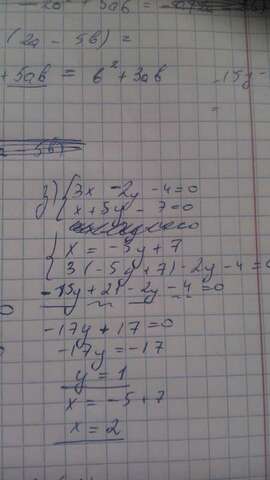 (2a - 5b) =
+ 5ab = b² + 3ab
15y -
=
3) { 3x - 2y - 4 = 0
x + 5y - 7 = 0
{ x = -5y + 7
3(-5y + 7) - 2y - 4 = 0
-15y + 21 - 2y - 4 = 0
-17y + 17 = 0
-17y = -17
y = 1
x = -5 + 7
x = 2